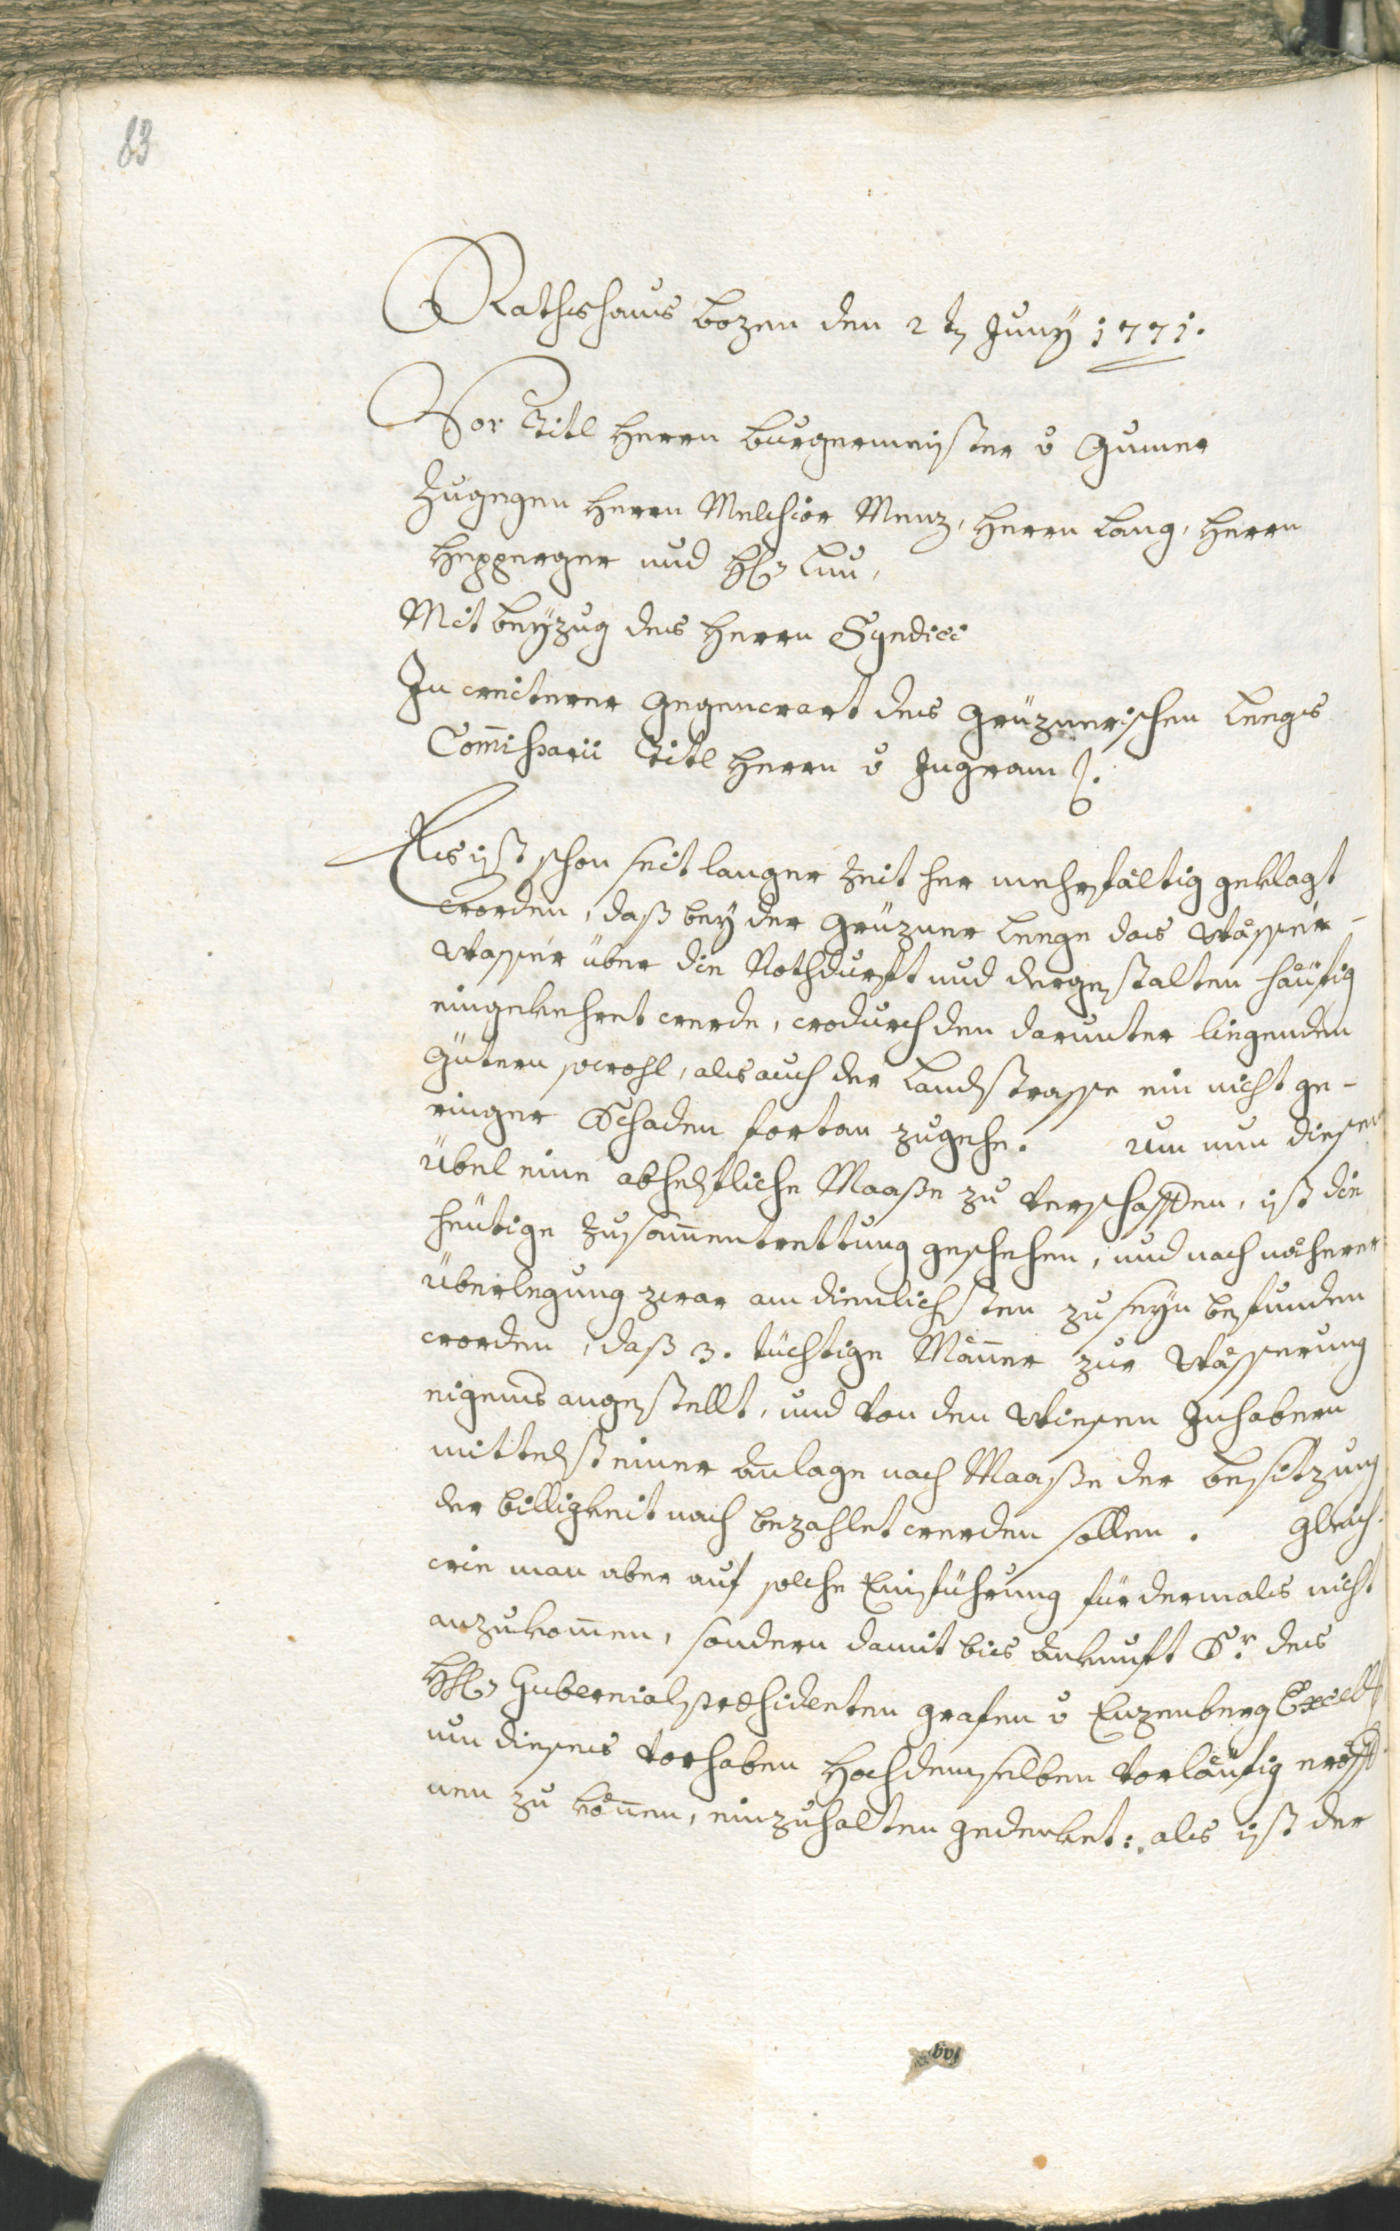 83
Rathshaus Bozen den 2tn Juny 1771.
Vor Titl Herrn Burgermeister v Gumer
Zugegen Herrn Melchior Menz, Herrn Lang, Herrn
Hepperger und H. Lun,
Mit Beyzug des Herrn Syndici
In weiterer Gegenwart des Grüznerischen Leegs
Commissarii Titl Herrn v Ingram
Es ist schon seit langer Zeit her mehrfältig geklagt
worden, daß bey der Grüzner Leege das Wässer-
Wasser über die Nothdurft und dergestalten häufig
eingekehret werde, wodurch den darunter liegenden
Gütern sowohl, als auch der Landstrasse ein nicht ge-
ringer Schaden fortan zugehe. Um nun diesen
Übel eine abhelfliche Maaße zu verschaffen, ist die
heutige Zusammentrettung geschehen, und nach näherer
Überlegung zwar am dienlichsten zu seyn befunden
worden, daß 3. tüchtige Männer zur Wässerung
eigends angestellt, und von den Wiesen Inhabern
mittelst einer Anlage nach Maaße der Besitzung
der Billigkeit nach bezahlet werden sollen. Gleich-
wie man aber auf solche Einführung für dermals nicht
anzukommen, sondern damit bis Ankunft Sr. des
H. Gubernialpræsidenten Grafen v Enzenberg Excell.
um dieses Vorhaben Hochdemselben vorläufig eröff-
nen zu können, einzuhalten gedenket: als ist der